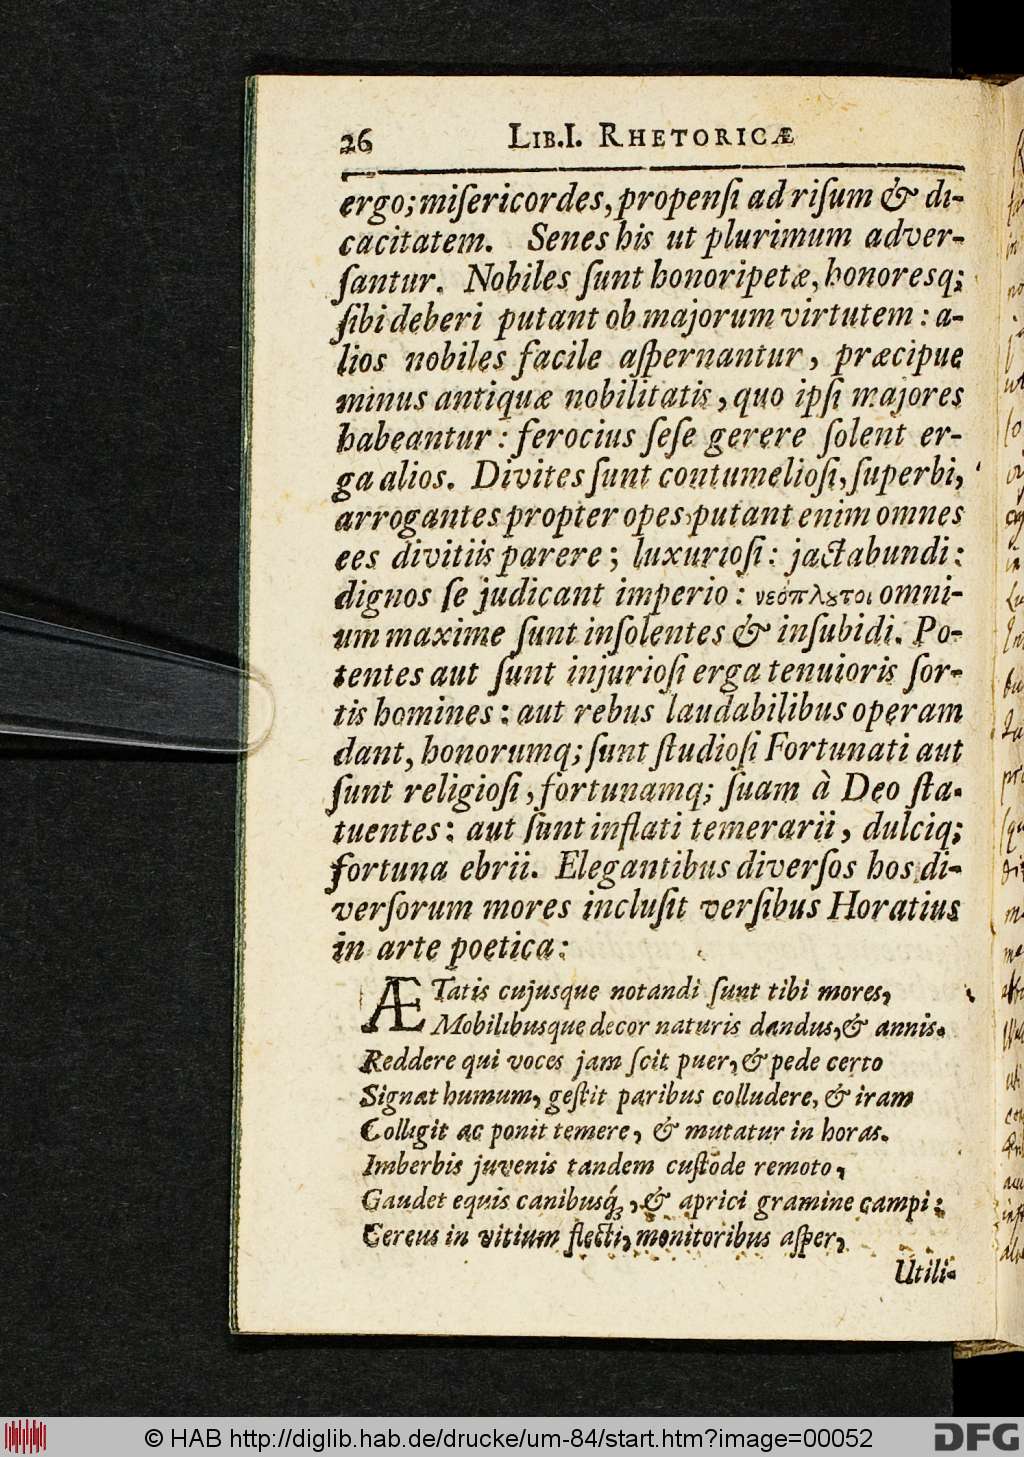 26 LIB.I. RHETORICÆ
ergo; miſericordes, propenſi ad riſum & di-
cacitatem. Senes his ut plurimum adver-
ſantur. Nobiles ſunt honoripetæ, honoresq;
ſibi deberi putant ob majorum virtutem: a-
lios nobiles facile aſpernantur, præcipue
minus antiquæ nobilitatis, quo ipſi majores
habeantur: ferocius ſeſe gerere ſolent er-
ga alios. Divites ſunt contumelioſi, ſuperbi,
arrogantes propter opes, putant enim omnes
ees divitiis parere; luxurioſi: jactabundi:
dignos ſe judicant imperio: νεόπλȣτοι omni-
um maxime ſunt inſolentes & inſubidi. Po-
tentes aut ſunt injurioſi erga tenuioris ſor-
tis homines: aut rebus laudabilibus operam
dant, honorumq; ſunt ſtudioſi Fortunati aut
ſunt religioſi, fortunamq; ſuam à Deo ſta-
tuentes: aut ſunt inflati temerarii, dulciq;
fortuna ebrii. Elegantibus diverſos hos di-
verſorum mores incluſit verſibus Horatius
in arte poetica:
ÆTatis cujusque notandi ſunt tibi mores,
Mobilibusque decor naturis dandus, & annis.
Reddere qui voces jam ſcit puer, & pede certo
Signat humum, geſtit paribus colludere, & iram
Colligit ac ponit temere, & mutatur in horas.
Imberbis juvenis tandem cuſtode remoto,
Gaudet equis canibusq́;, & aprici gramine campi:
Cereus in vitium flecti, monitoribus aſper,
Utili-
© HAB http://diglib.hab.de/drucke/um-84/start.htm?image=00052
DFG